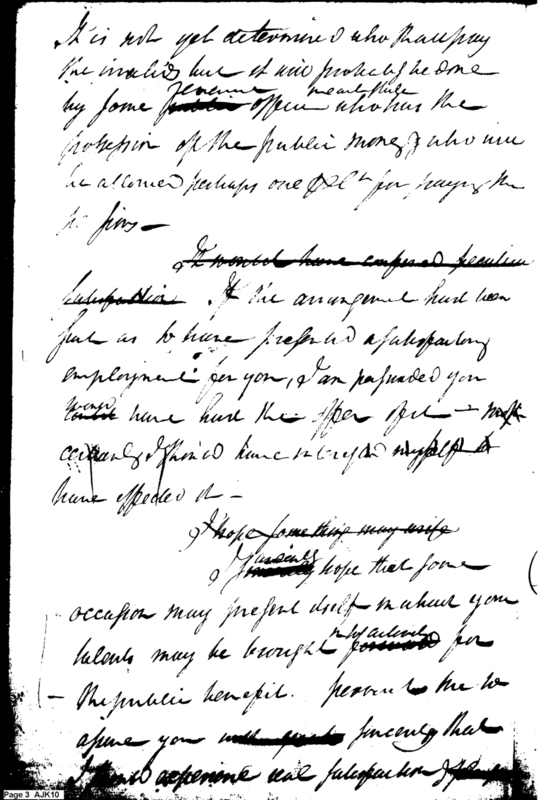 It is not yet determined who shall pay
the invalids but it will probably be done
by some public revenue officer near the place who has the
possession of the public money & who will
be allowed perhaps one for paying the
It would have conferred peculiar
satisfaction. If the arrangement had been
such as to have presented a satisfactory
employment for you, I am persuaded you
would have had the offer of it —
certainly I should have interested myself to
have effected it —
I hope something may arise
I anxiously hope that some
occasion may present itself in which your
talents may be brought into activity forward for
the public benefit. permit me to
assure you sincerely that
I should experience real satisfaction
Page 3 AJK10